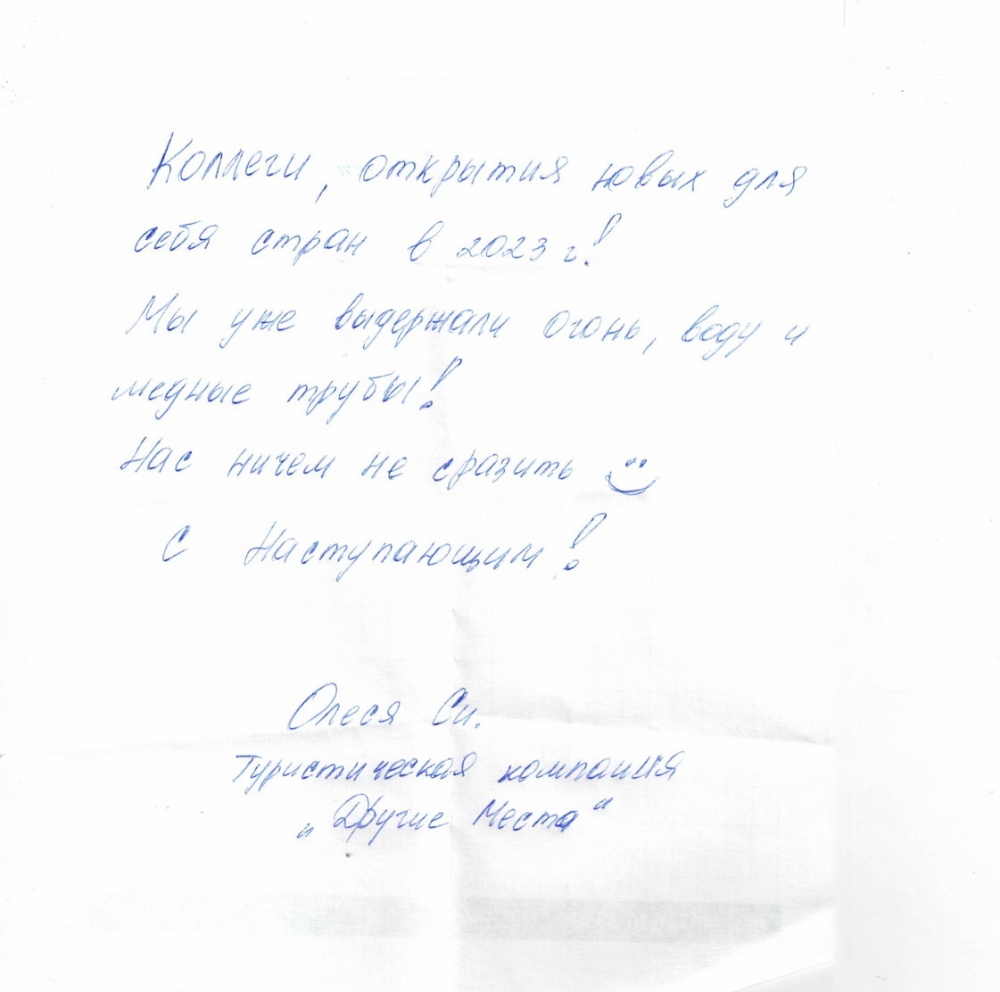 Коллеги, открытия новых для
себя стран в 2023 г!
Мы уже выдержали огонь, воду и
медные трубы!
Нас ничем не сразить
С Наступающим!
Олеся Си.
Туристическая компания
„Другие Места“